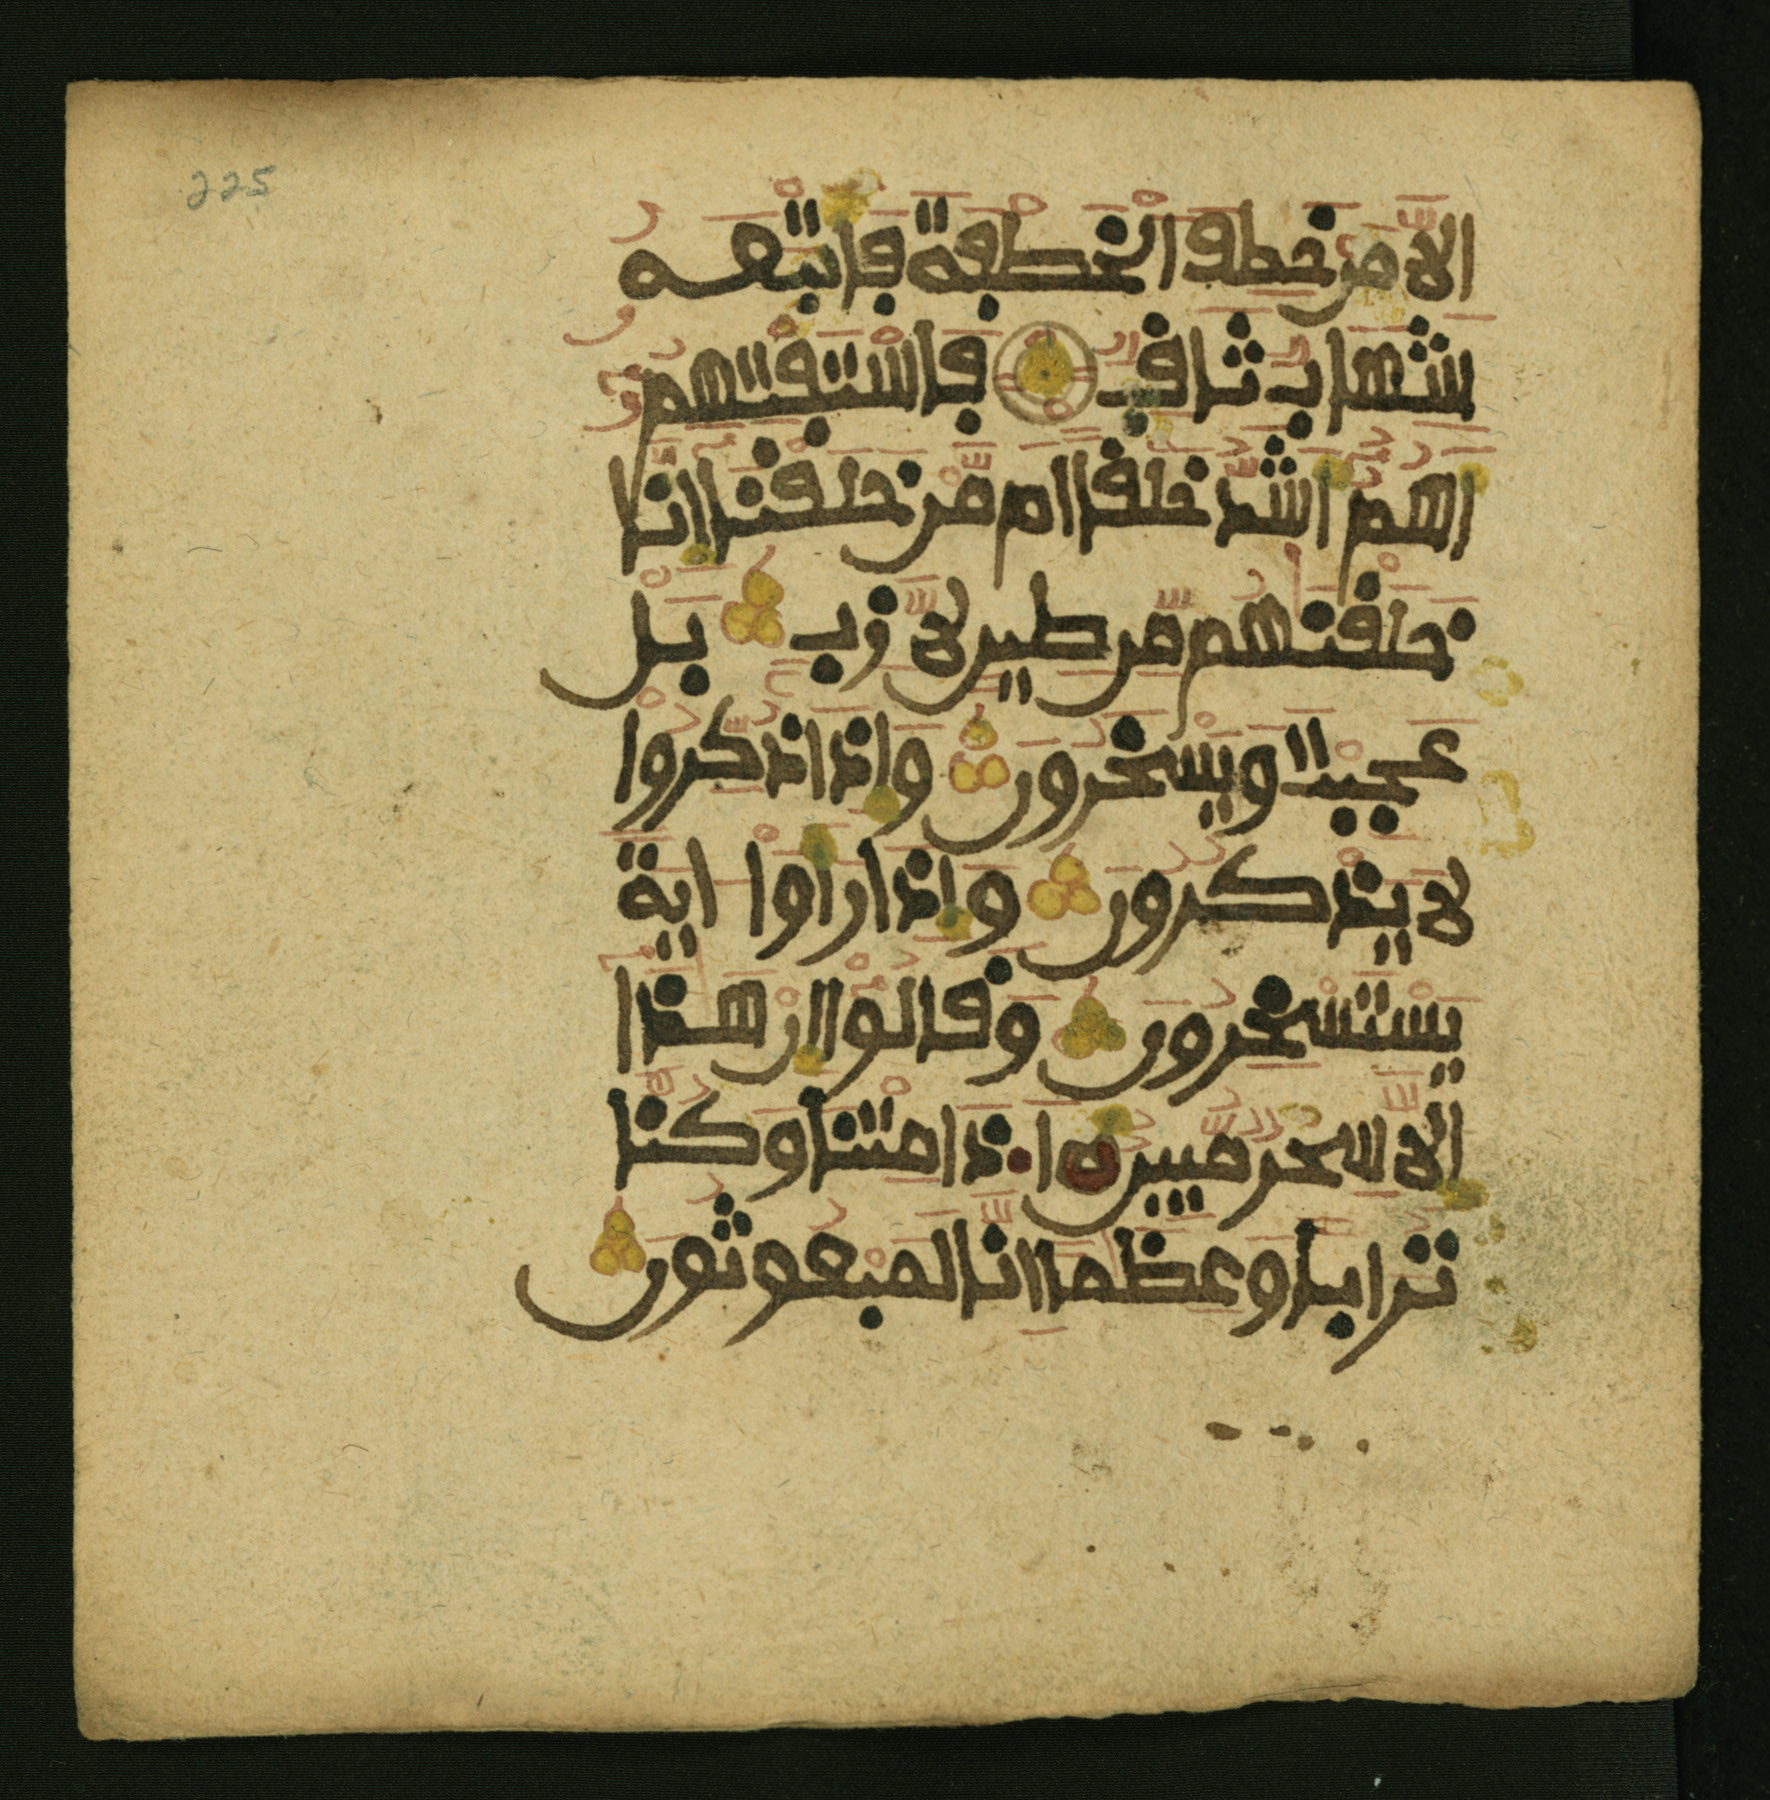 225
الا من خطف الخطفة فاتبعه
شهاب ثاقب فاستفتهم
اهم اشد خلقا ام من خلقنا انا
خلقنهم من طين لازب بل
عجبت ويسخرون واذا ذكروا
لا يذكرون واذا راوا اية
يستسخرون وقالوا ان هذا
الا سحر مبين اذا متنا وكنا
ترابا وعظما انا لمبعوثون